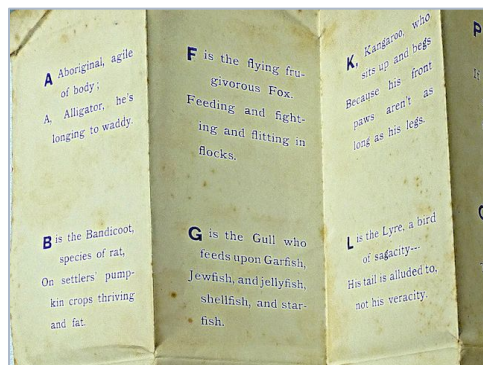 A Aboriginal, agile
of body;
A, Alligator, he's
longing to waddy.
B is the Bandicoot,
species of rat,
On settlers' pump-
kin crops thriving
and fat.
F is the flying fru-
givorous Fox.
Feeding and fight-
ing and flitting in
flocks.
G is the Gull who
feeds upon Garfish,
Jewfish, and jellyfish,
shellfish, and star-
fish.
K, Kangaroo, who
sits up and begs
Because his front
paws aren't as
long as his legs.
L is the Lyre, a bird
of sagacity---
His tail is alluded to,
not his veracity.
P